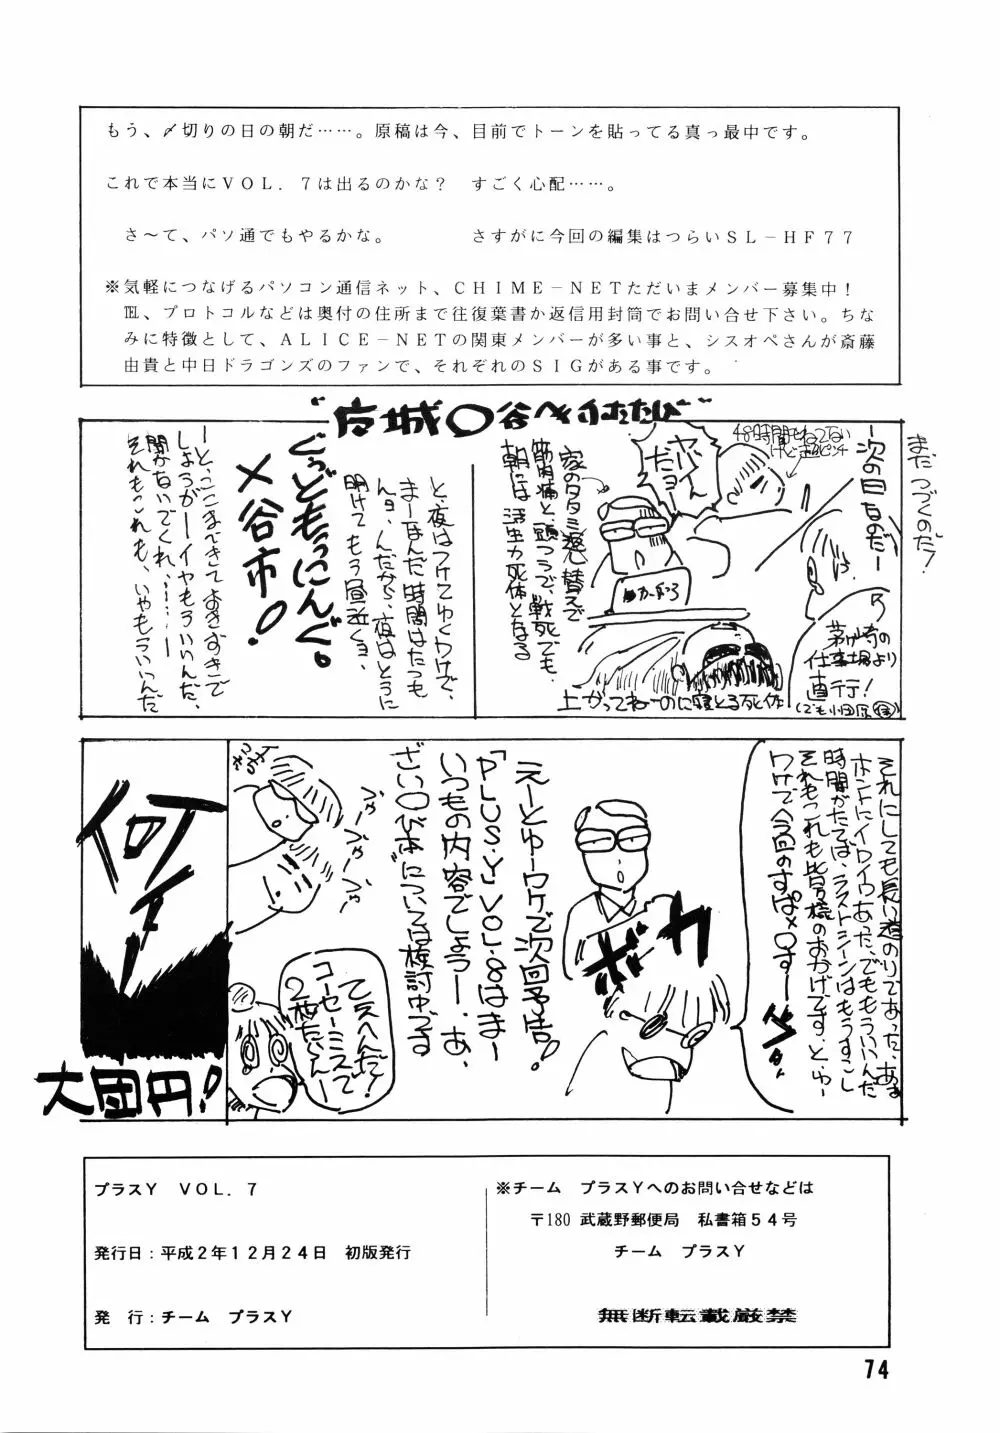 もう、〆切りの日の朝だ……。原稿は今、目前でトーンを貼ってる真っ最中です。
これで本当にＶＯＬ．７は出るのかな？　すごく心配……。
さ～て、パソ通でもやるかな。　　　　　さすがに今回の編集はつらいＳＬ－ＨＦ７７
※気軽につなげるパソコン通信ネット、ＣＨＩＭＥ－ＮＥＴただいまメンバー募集中！
℡、プロトコルなどは奥付の住所まで往復葉書か返信用封筒でお問い合せ下さい。ちな
みに特徴として、ＡＬＩＣＥ－ＮＥＴの関東メンバーが多い事と、シスオペさんが斎藤
由貴と中日ドラゴンズのファンで、それぞれのＳＩＧがある事です。
まだつづくのだ！
―次の日なのだ―
48時間もねてない
茅ヶ崎の
仕事場より
直行！
家のタタミ返し替えで
筋肉痛と、頭つうで、戦死でも、
朝には活虫力死体となる
上がってねーのに寝とる死体
と、夜はつけてゆくワケで、
まーほんだ時間はたつも
んョ、んだから、夜はとうに
明けてもう昼近くョ、
ぐっどもっにんぐ。
〆谷市！
―と、ここまできておきすきで
しょうがーイヤもういいんだ、
聞かないでくれ………―
それもこれも、いやもういいんだ
それにしても長い道のりであった、ああ
ホントにイロイロあった、でももういいんだ
時間がたてば、ラストシーンはもうすこし
それもこれも皆様のおかげです、とゆー
ワケで今回のすぱ〆〇す―
えーとゆーワケで次回予告！
「PLUS.Y」VOL.8はまー
いつもの内容でしょうー、あ、
さい〇び本については検討中つる
乙又へんだ！
コーセーミスで
2枚たりん―
何ィ！
大団円！
プラスＹ　ＶＯＬ．７
発行日：平成２年１２月２４日　初版発行
発　行：チーム　プラスＹ
※チーム　プラスＹへのお問い合せなどは
〒180 武蔵野郵便局　私書箱５４号
チーム　プラスＹ
無断転載厳禁
74